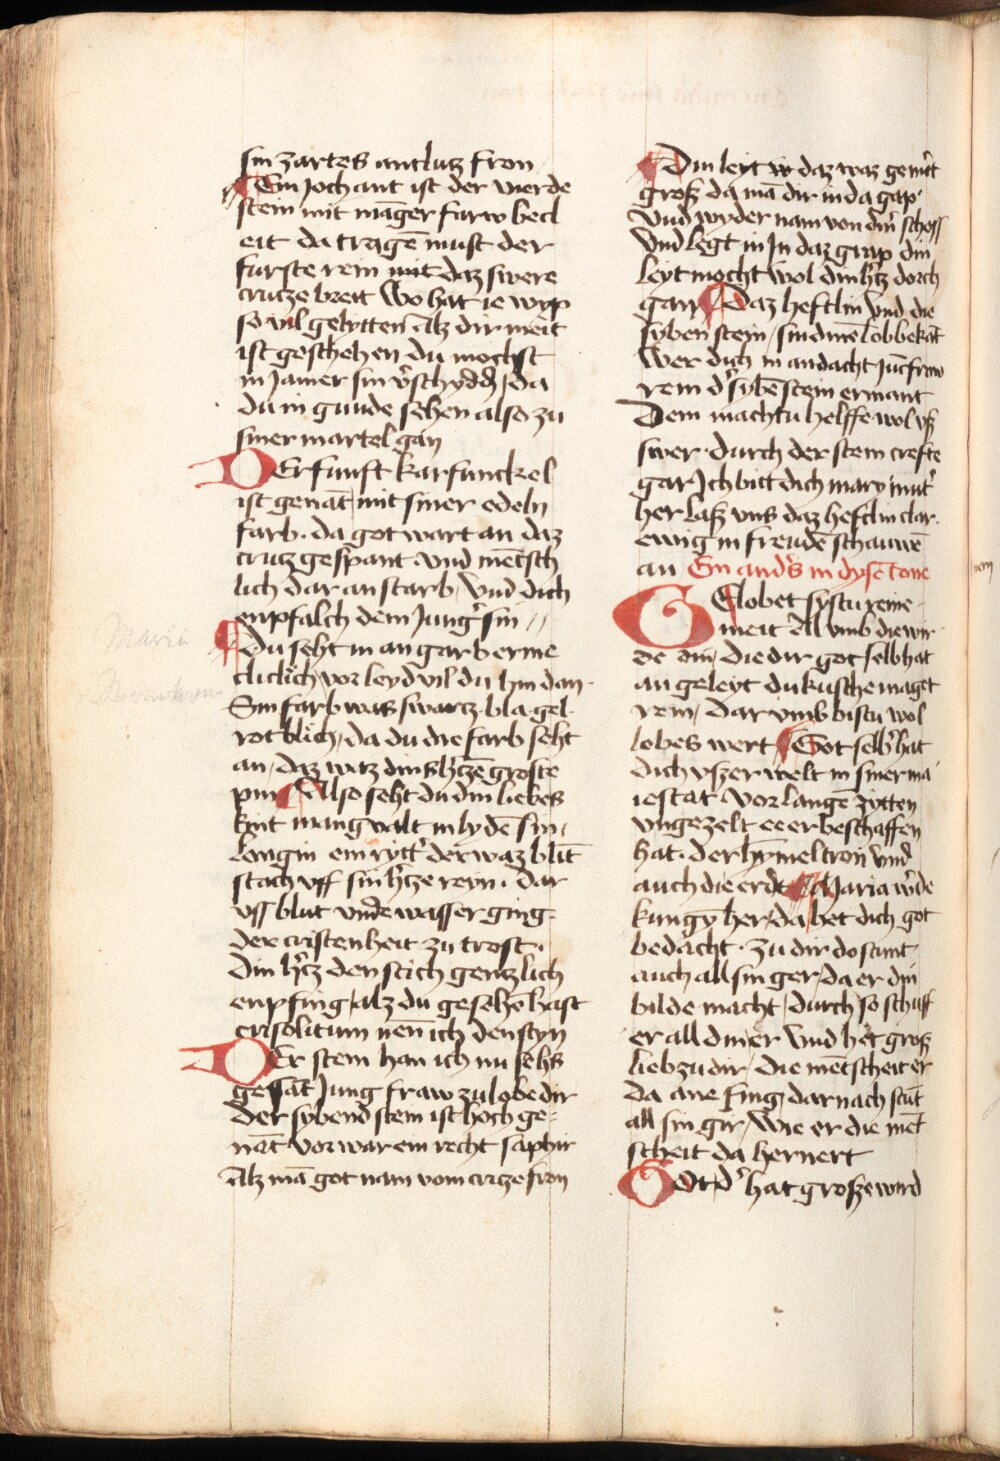 sin zartes antlutz fron
Ein jochant ist der vierde
stein mit māger farw becl
eit da tragē must der
furste rein mit daz swere
crutze breit Wo hat ie wyp
so vil gelytten Alz dir meit
ist geschehen du mochst
in jamer sin v̓schydd͛ / da
du in gunde sehen also zu
siner martel gan
DEr funft karfunckel
ist genāt mit siner edeln
farb · da got wart an daz
crutz gespant Vnd mētsch
lich dar an starb / Vnd dich
enpfalch dem Jung̓ sin //
Du seht in an garb erme
cliclich vor leyd vil du hin dan ·
Sin farb was swartz · bla gel ·
rot blich / da du die farb seht
an / daz waz dins h̓tzē groste
pin Also seht du din liebes
kint mangvalt in lydē sin /
Longin ein rytt̓ der waz blīt
stach vff sin h̓tze reyn · dar
vss blut vnde wasser ging ·
der cristenheit zu trost ·
Din h̓tz den stich gentzlich
enpfing / alz du gesehē hast
crisolitum nen̄ ich den styn
DEr stein han ich nu sehs
gesāt Jung fraw zu lobe dir
Der sybend stein ist hoch ge-
nāt Vor war ein recht saphir
Alz mā got nam vom crutze fron
Din leyt w daz waz gem̓t
groß da mā dir in da gap ·
Vnd wyder nam von dīn̓ schoss
Vnd legt in Jn daz grap din
leyt mocht wol din h̓tz dorch
gan Daz heftlin Vnd die
syben stein / sind mē lob bekāt
Wer dich in andacht Jūcfrow
rein d̓ sybē stein ermant
Dem machtu helffe wol vß
swer · durch der stein crefte
gar Jch bitt dich mary mut̓
her laß vns daz heftlin clar ·
ewig in freudē schauwē
an Ein and̓s in dysē tone
GElobet systu reine
meit All vmb die wir
de din / die dir got selb hat
an geleyt du kusche maget
rein / Dar vmb bistu wol
lobes wert Got selb̓ hat
dich vszer welt in siner ma
iestat Vor langē zytten
vngezelt ee er beschaffen
hat · der hȳmel tron Vnd
auch die erdt Maria w̓de
kungȳ her / da het dich got
bedacht · zu dir do stunt
auch all sin ger / da er din
bilde macht / durch so schuff
er all diner Vnd het groß
lieb zu dir / die mētscheit er
da ane fing / darnach stūt
all sin gir / Wie er die mēt
scheit da hernert
GOt d̓ hat große wird